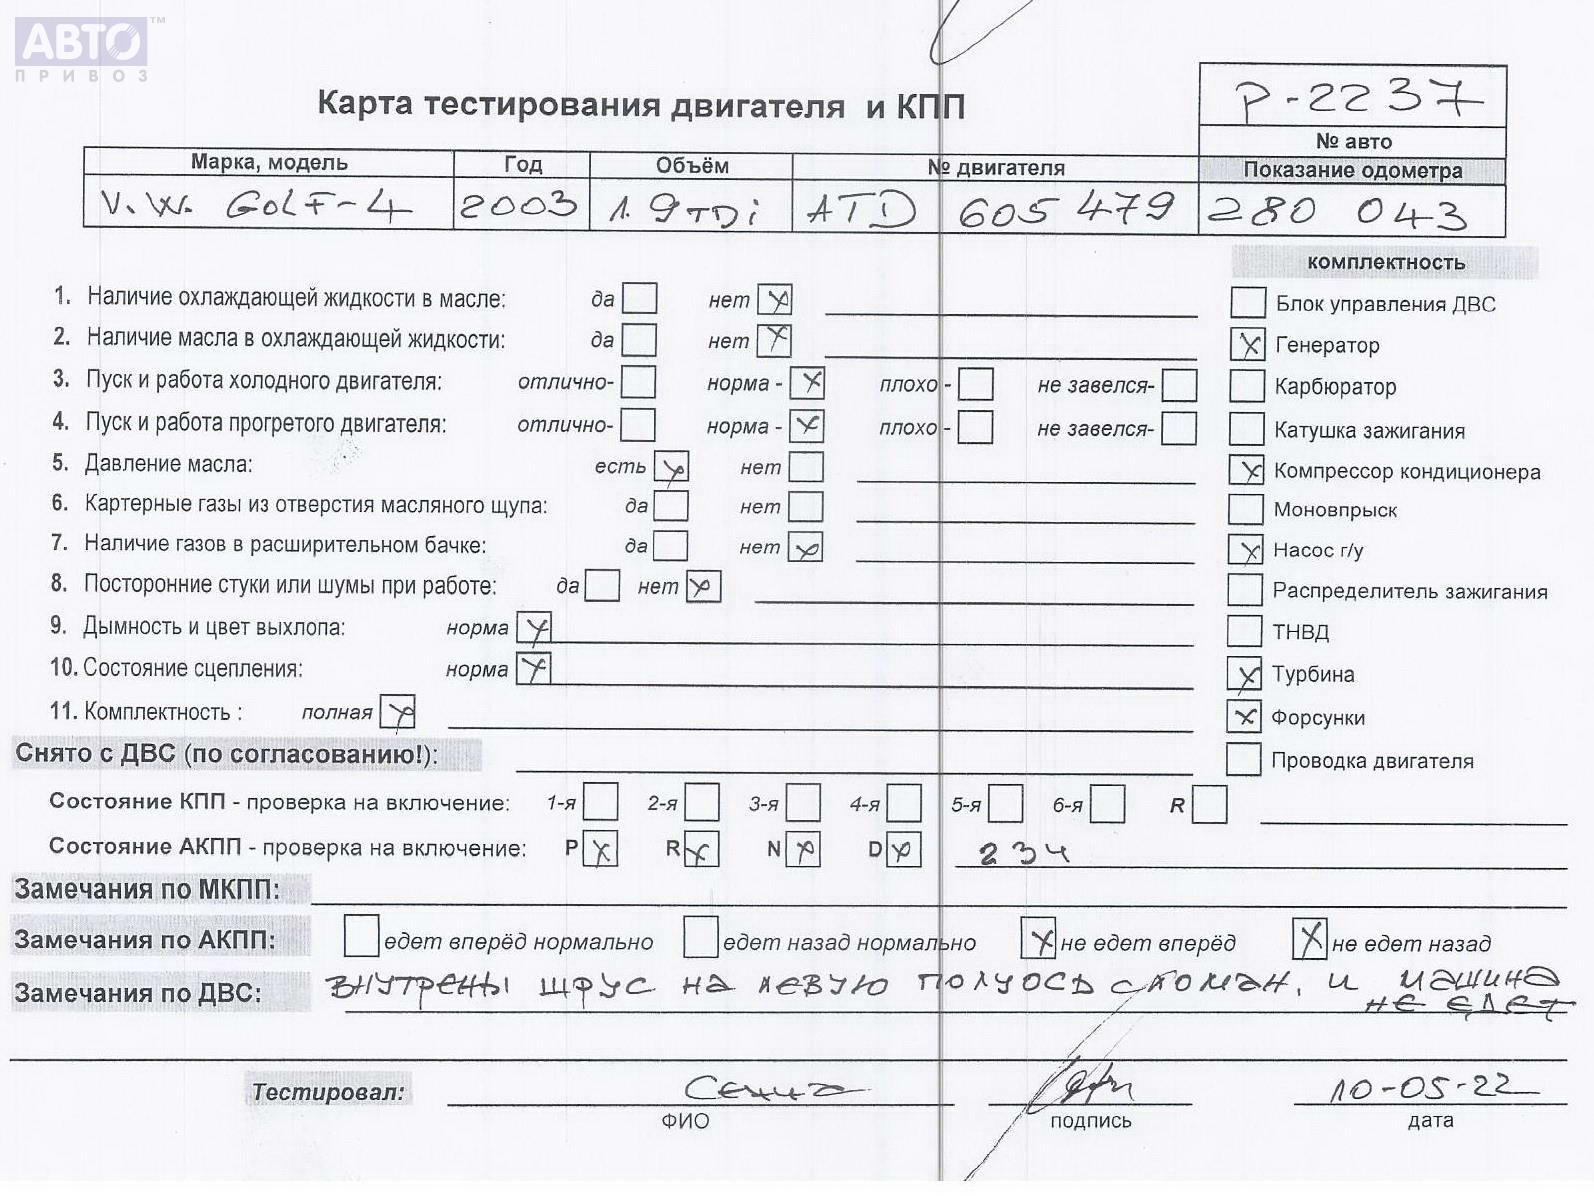 АВТО™
ПРИВОЗ
Карта тестирования двигателя и КПП
P-2237
№ авто
Марка, модель Год Объём № двигателя Показание одометра
V.W. GOLF-4 2003 1.9TDi ATD 605 479 280 043
комплектность
1. Наличие охлаждающей жидкости в масле: да нет x
Блок управления ДВС
2. Наличие масла в охлаждающей жидкости: да нет x
x Генератор
3. Пуск и работа холодного двигателя: отлично- норма - x плохо - не завелся-
Карбюратор
4. Пуск и работа прогретого двигателя: отлично- норма - x плохо - не завелся-
Катушка зажигания
5. Давление масла: есть x нет
x Компрессор кондиционера
6. Картерные газы из отверстия масляного щупа: да нет
Моновпрыск
7. Наличие газов в расширительном бачке: да нет x
x Насос г/у
8. Посторонние стуки или шумы при работе: да нет x
Распределитель зажигания
9. Дымность и цвет выхлопа: норма x
ТНВД
10. Состояние сцепления: норма x
x Турбина
11. Комплектность : полная x
x Форсунки
Снято с ДВС (по согласованию!):
Проводка двигателя
Состояние КПП - проверка на включение: 1-я 2-я 3-я 4-я 5-я 6-я R
Состояние АКПП - проверка на включение: P x R x N x D x 234
Замечания по МКПП:
Замечания по АКПП: едет вперёд нормально едет назад нормально x не едет вперёд x не едет назад
Замечания по ДВС: внутрены шрус на левую полуось сломан, и машина
не едет
Тестировал: Сениа 10-05-22
ФИО подпись дата